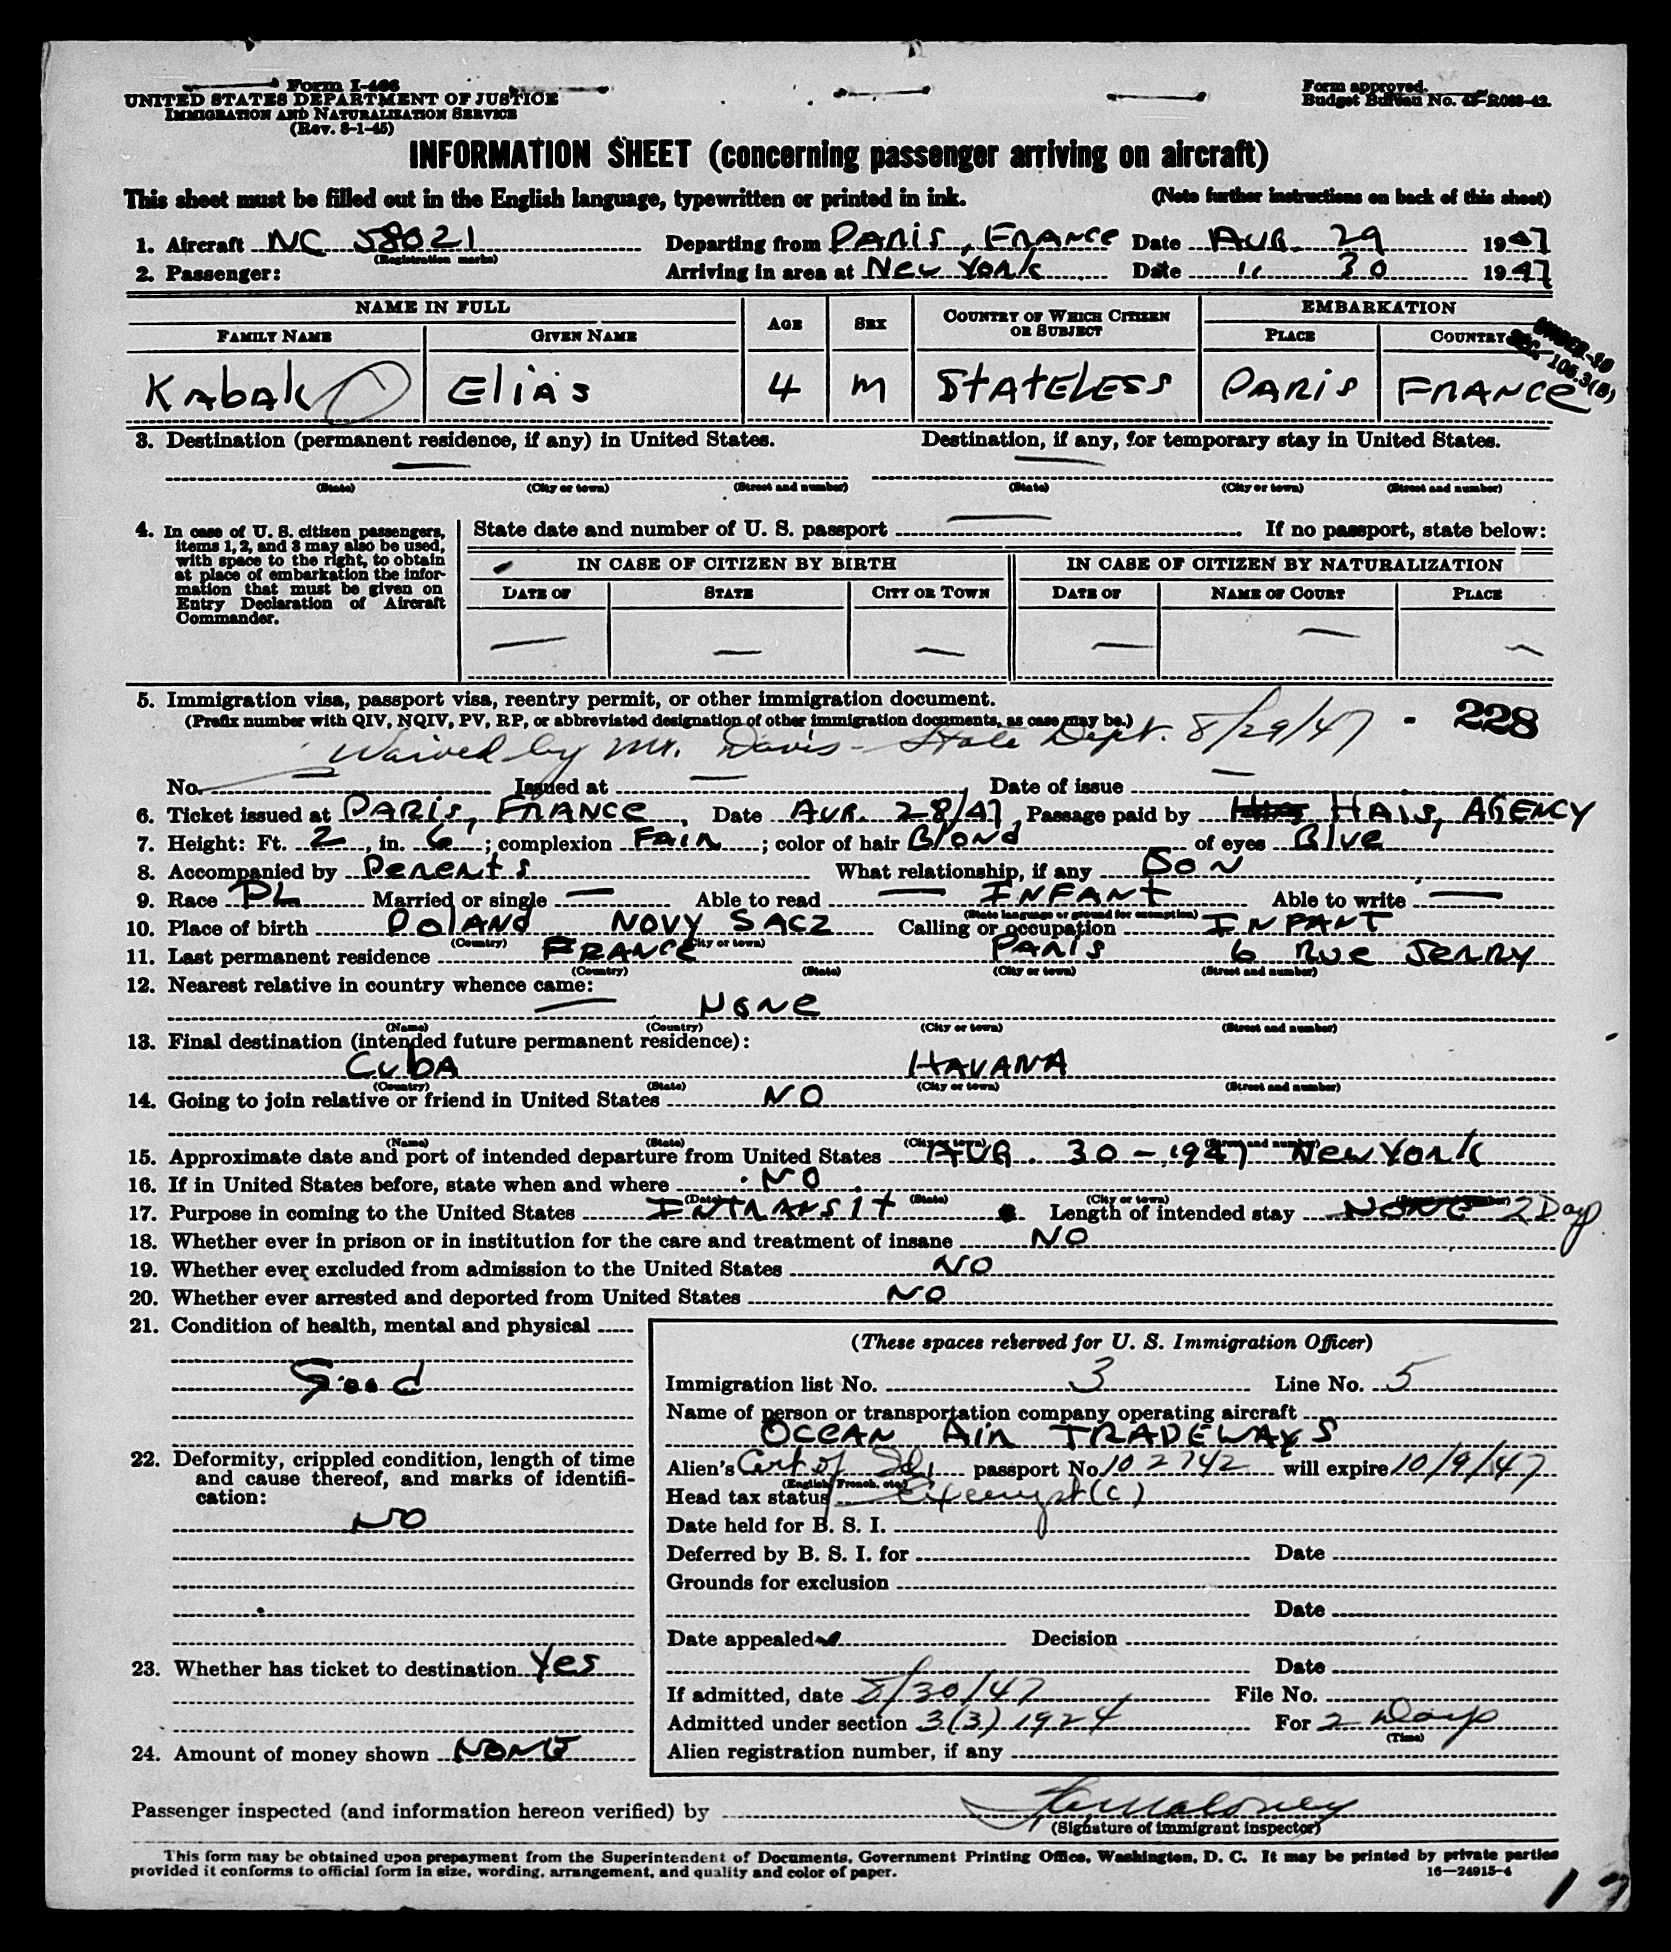 Form I-466
UNITED STATES DEPARTMENT OF JUSTICE
IMMIGRATION AND NATURALIZATION SERVICE
(Rev. 8-1-45)
Form approved.
Budget Bureau No. 43-R063-42.
INFORMATION SHEET (concerning passenger arriving on aircraft)
This sheet must be filled out in the English language, typewritten or printed in ink. (Note further instructions on back of this sheet)
1. Aircraft NC 58021 Departing from PARIS, FRANCE Date AUG. 29 1947
(Registration marks)
2. Passenger: Arriving in area at NEW YORK Date " 30 1947
NAME IN FULL AGE SEX COUNTRY OF WHICH CITIZEN OR SUBJECT EMBARKATION
FAMILY NAME GIVEN NAME PLACE COUNTRY
UNDER-16
SEC. 105.3(B)
KAbAK EliAs 4 M STATELESS PARIS FRANCE
3. Destination (permanent residence, if any) in United States. Destination, if any, for temporary stay in United States.
— —
(State) (City or town) (Street and number) (State) (City or town) (Street and number)
4. In case of U. S. citizen passengers, items 1, 2, and 3 may also be used, with space to the right, to obtain at place of embarkation the information that must be given on Entry Declaration of Aircraft Commander.
State date and number of U. S. passport — If no passport, state below:
IN CASE OF CITIZEN BY BIRTH IN CASE OF CITIZEN BY NATURALIZATION
DATE OF STATE CITY OR TOWN DATE OF NAME OF COURT PLACE
— — — — — —
5. Immigration visa, passport visa, reentry permit, or other immigration document.
(Prefix number with QIV, NQIV, PV, RP, or abbreviated designation of other immigration documents, as case may be.)
228
Waived by Mr. Davis - State Dept. 8/29/47
No. — Issued at — Date of issue —
6. Ticket issued at PARIS, FRANCE, Date AUG. 28/47, Passage paid by HAIS, AGENCY
7. Height: Ft. 2, in. 6; complexion FAIR; color of hair Blond of eyes Blue
8. Accompanied by Perents What relationship, if any SON
9. Race PL Married or single — Able to read — INFANT Able to write —
(State language or ground for exemption)
10. Place of birth POLAND NOVY SACZ Calling or occupation INPANT
(Country) (City or town)
11. Last permanent residence FRANCE PARIS 6 RUE JERRY
(Country) (State) (City or town) (Street and number)
12. Nearest relative in country whence came:
— NONE
(Name) (Country) (City or town) (Street and number)
13. Final destination (intended future permanent residence):
CubA HAVANA
(Country) (State) (City or town) (Street and number)
14. Going to join relative or friend in United States NO
(Name) (State) (City or town) (Street and number)
15. Approximate date and port of intended departure from United States AUG. 30-1947 New York
16. If in United States before, state when and where NO
(Date) (State) (City or town) (Street and number)
17. Purpose in coming to the United States INTRANSIT Length of intended stay NONE 2 Days
18. Whether ever in prison or in institution for the care and treatment of insane NO
19. Whether ever excluded from admission to the United States NO
20. Whether ever arrested and deported from United States NO
21. Condition of health, mental and physical
Good
22. Deformity, crippled condition, length of time and cause thereof, and marks of identification:
NO
23. Whether has ticket to destination Yes
24. Amount of money shown NONE
(These spaces reserved for U. S. Immigration Officer)
Immigration list No. 3 Line No. 5
Name of person or transportation company operating aircraft
OCEAN AIR TRADEWAYS
Alien's Cert of Id, passport No. 102742 will expire 10/9/47
(English, French, etc.)
Head tax status Exempt (c)
Date held for B. S. I.
Deferred by B. S. I. for Date
Grounds for exclusion
Date
Date appealed Decision
Date
If admitted, date 8/30/47 File No.
Admitted under section 3(3) 1924 For 2 Days
(Time)
Alien registration number, if any
Passenger inspected (and information hereon verified) by
(Signature of immigrant inspector)
This form may be obtained upon prepayment from the Superintendent of Documents, Government Printing Office, Washington, D. C. It may be printed by private parties
provided it conforms to official form in size, wording, arrangement, and quality and color of paper. 16—24915-4